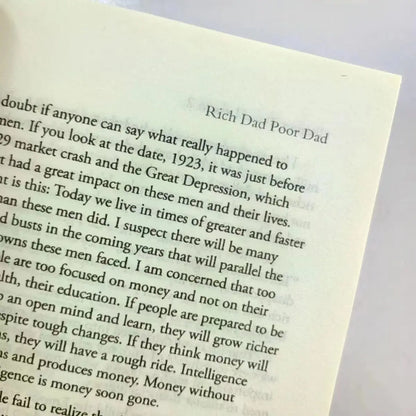 Rich Dad Poor Dad
doubt if anyone can say what really happened to
men. If you look at the date, 1923, it was just before
29 market crash and the Great Depression, which
t had a great impact on these men and their lives.
nt is this: Today we live in times of greater and faster
han these men did. I suspect there will be many
d busts in the coming years that will parallel the
owns these men faced. I am concerned that too
le are too focused on money and not on their
lth, their education. If people are prepared to be
p an open mind and learn, they will grow richer
espite tough changes. If they think money will
s, they will have a rough ride. Intelligence
ns and produces money. Money without
lligence is money soon gone.
le fail to realize th